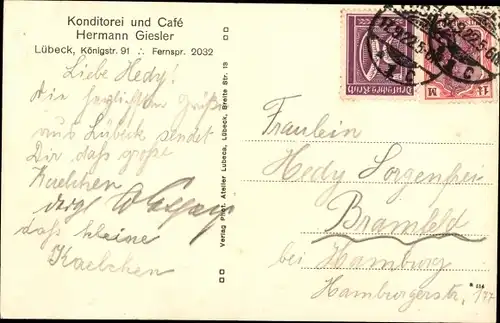 Konditorei und Café
Hermann Giesler
Lübeck, Königstr. 91 ∴ Fernspr. 2032
Liebe Hedy!
Die herzlichsten Grüße
aus Lübeck sendet
Dir das große
Kaelchen
das kleine
Kaelchen
Verlag Phot. Atelier Lubeca, Lübeck, Breite Str. 19
Deutsches Reich
17.9.22.5-6
Fräulein
Hedy Sorgenfrei
Bramfeld
bei Hamburg
Hamburgerstr. 177